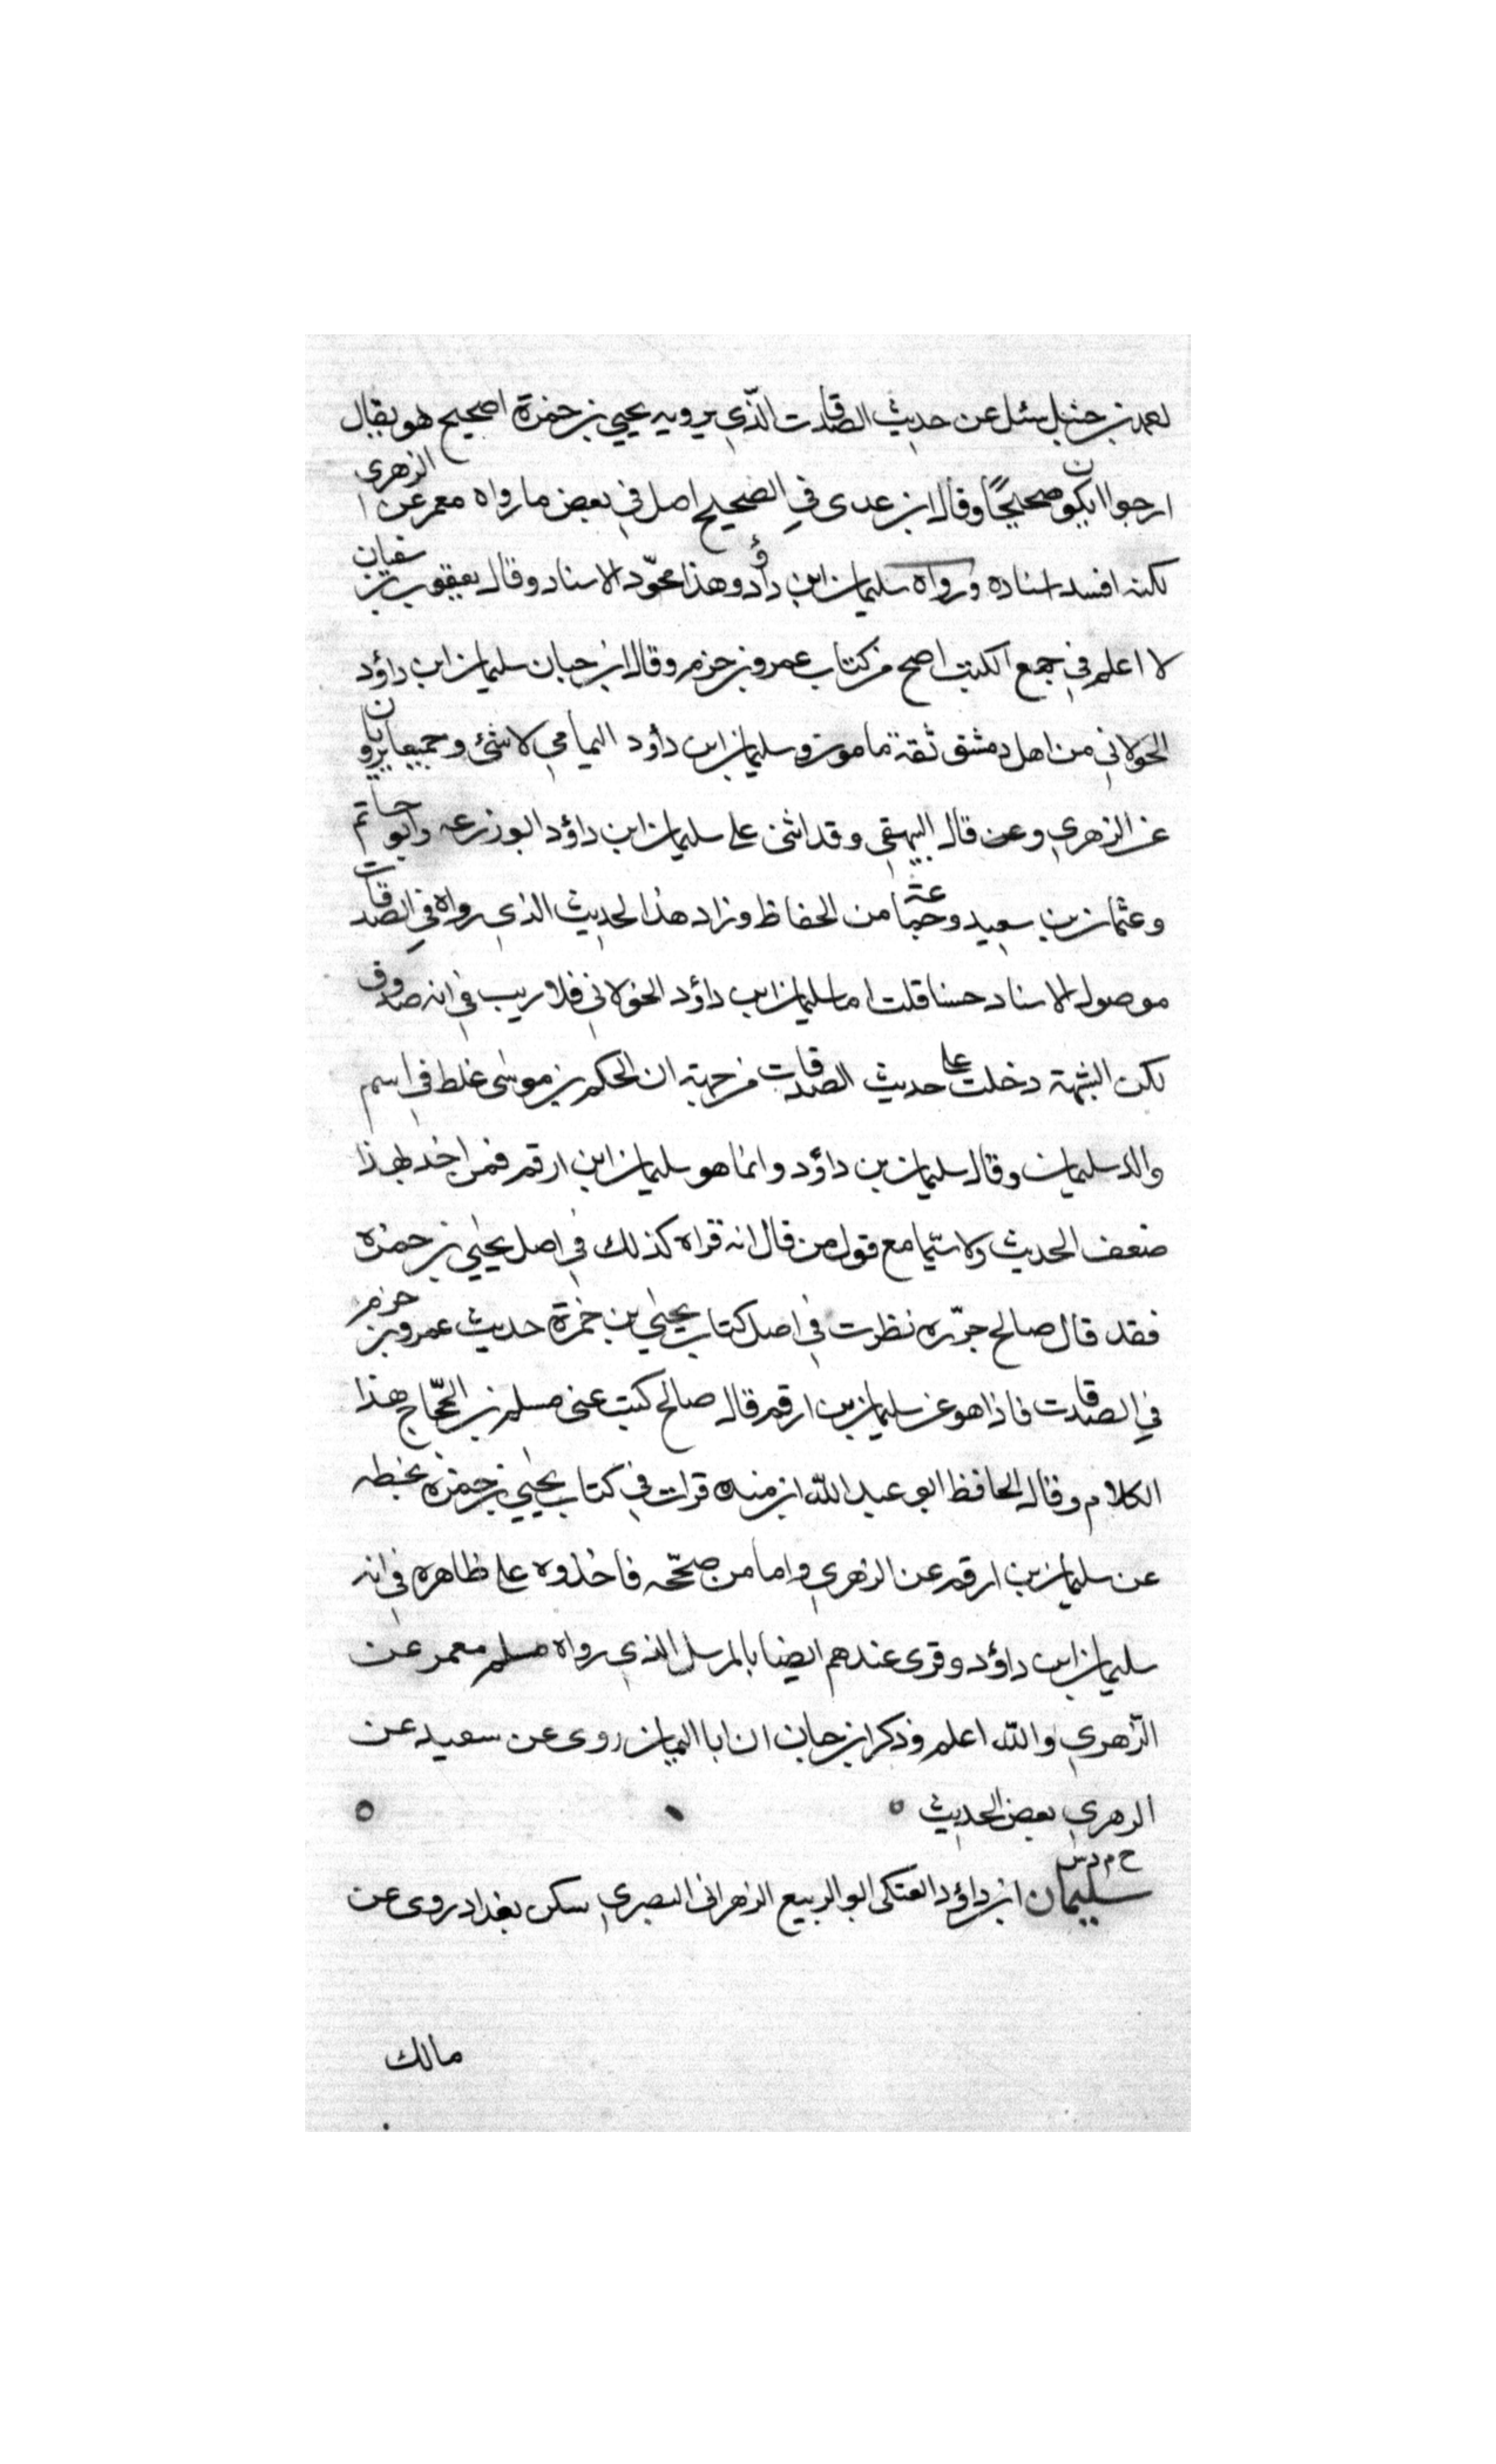 احمد بن حنبل سئل عن حديث الصدقات الذّي يرويه يحيي بن حمزة اصحيح هو فقال
ارجوا ان يكون صحيحًا وقال ابن عدى في الصحيح اصل في بعض ما رواه معمر عن الزهرى
لكنه افسد اسناده ورواه سليمان ابن داؤد وهذا مجوّد الاسناد وقال يعقوب بن سفيان
لا اعلم في جمع الكتب اصح من كتاب عمرو بن حزم وقال ابن حبان سليمان ابن داؤد
الخولاني من اهل دمشق ثقة مامون وسليمان ابن داؤد اليمامي لا شئ وجميعا يرويان
عن الزهري وعن قال البيهقي وقد اثنى على سليمان ابن داؤد ابو زرعه وابو حاتم
وعثمان بن سعيد وجماعة من الحفاظ وزاد هذا الحديث الذي رواه في الصدقات
موصول الاسناد حسنا قلت اما سليمان ابن داؤد الخولاني فلا ريب في انه صدوق
لكن الشبهة دخلت على حديث الصدقات من جهة ان الحكم بن موسى غلط في اسم
والد سليمان وقال سليمان بن داؤد وانما هو سليمان ابن ارقم فمن اخذ بهذا
ضعف الحديث ولا سيّما مع قول من قال انه قراه كذلك في اصل يحيي بن حمزه
فقد قال صالح جزّره نظرت في اصل كتاب يحيي بن حمزة حديث عمرو بن حزم
في الصدقات فاذا هو عن سليمان بن ارقم قال صالح كتب عنى مسلم بن الحجّاج هذا
الكلام وقال الحافظ ابو عبد الله ابن منده قرات في كتاب يحيي بن حمزه بخطه
عن سليمان بن ارقم عن الزهري واما من صحّحه فاخذوه على ظاهره في انه
سليمان ابن داؤد وقرى عندهم ايضا بالمرسل الذي رواه مسلم معمر عن
الزّهري والله اعلم وذكر ابن حبان ان ابا اليمان روى عن سعيد عن
الزهري بعض الحديث
خ م د س
سليمان ابن داؤد العتكى ابو الربيع الزهرانى البصري سكن بغداد روى عن
مالك